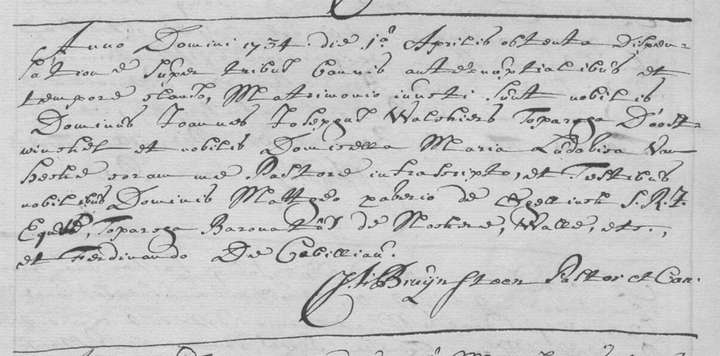 Anno Domini 1734 die 1a Aprilis obtenta dispen-
satione super tribus bannis antenuptialibus et
tempore clauso, Matrimonio iuncti sunt nobilis
Dominus Joannes Josephus Walckiers Toparcha D'oost-
winckel et nobilis Domicella Maria Ludovica Van
hecke coram me Pastore infrascripto, et Testibus
nobilibus Dominis Mattheo de S.R.I.
Equite, Toparcha Baronatus de Nockere, Walle, etc.,
et Ferdinando De Cabilliau.
Bruÿnsteen Pastor et Can.